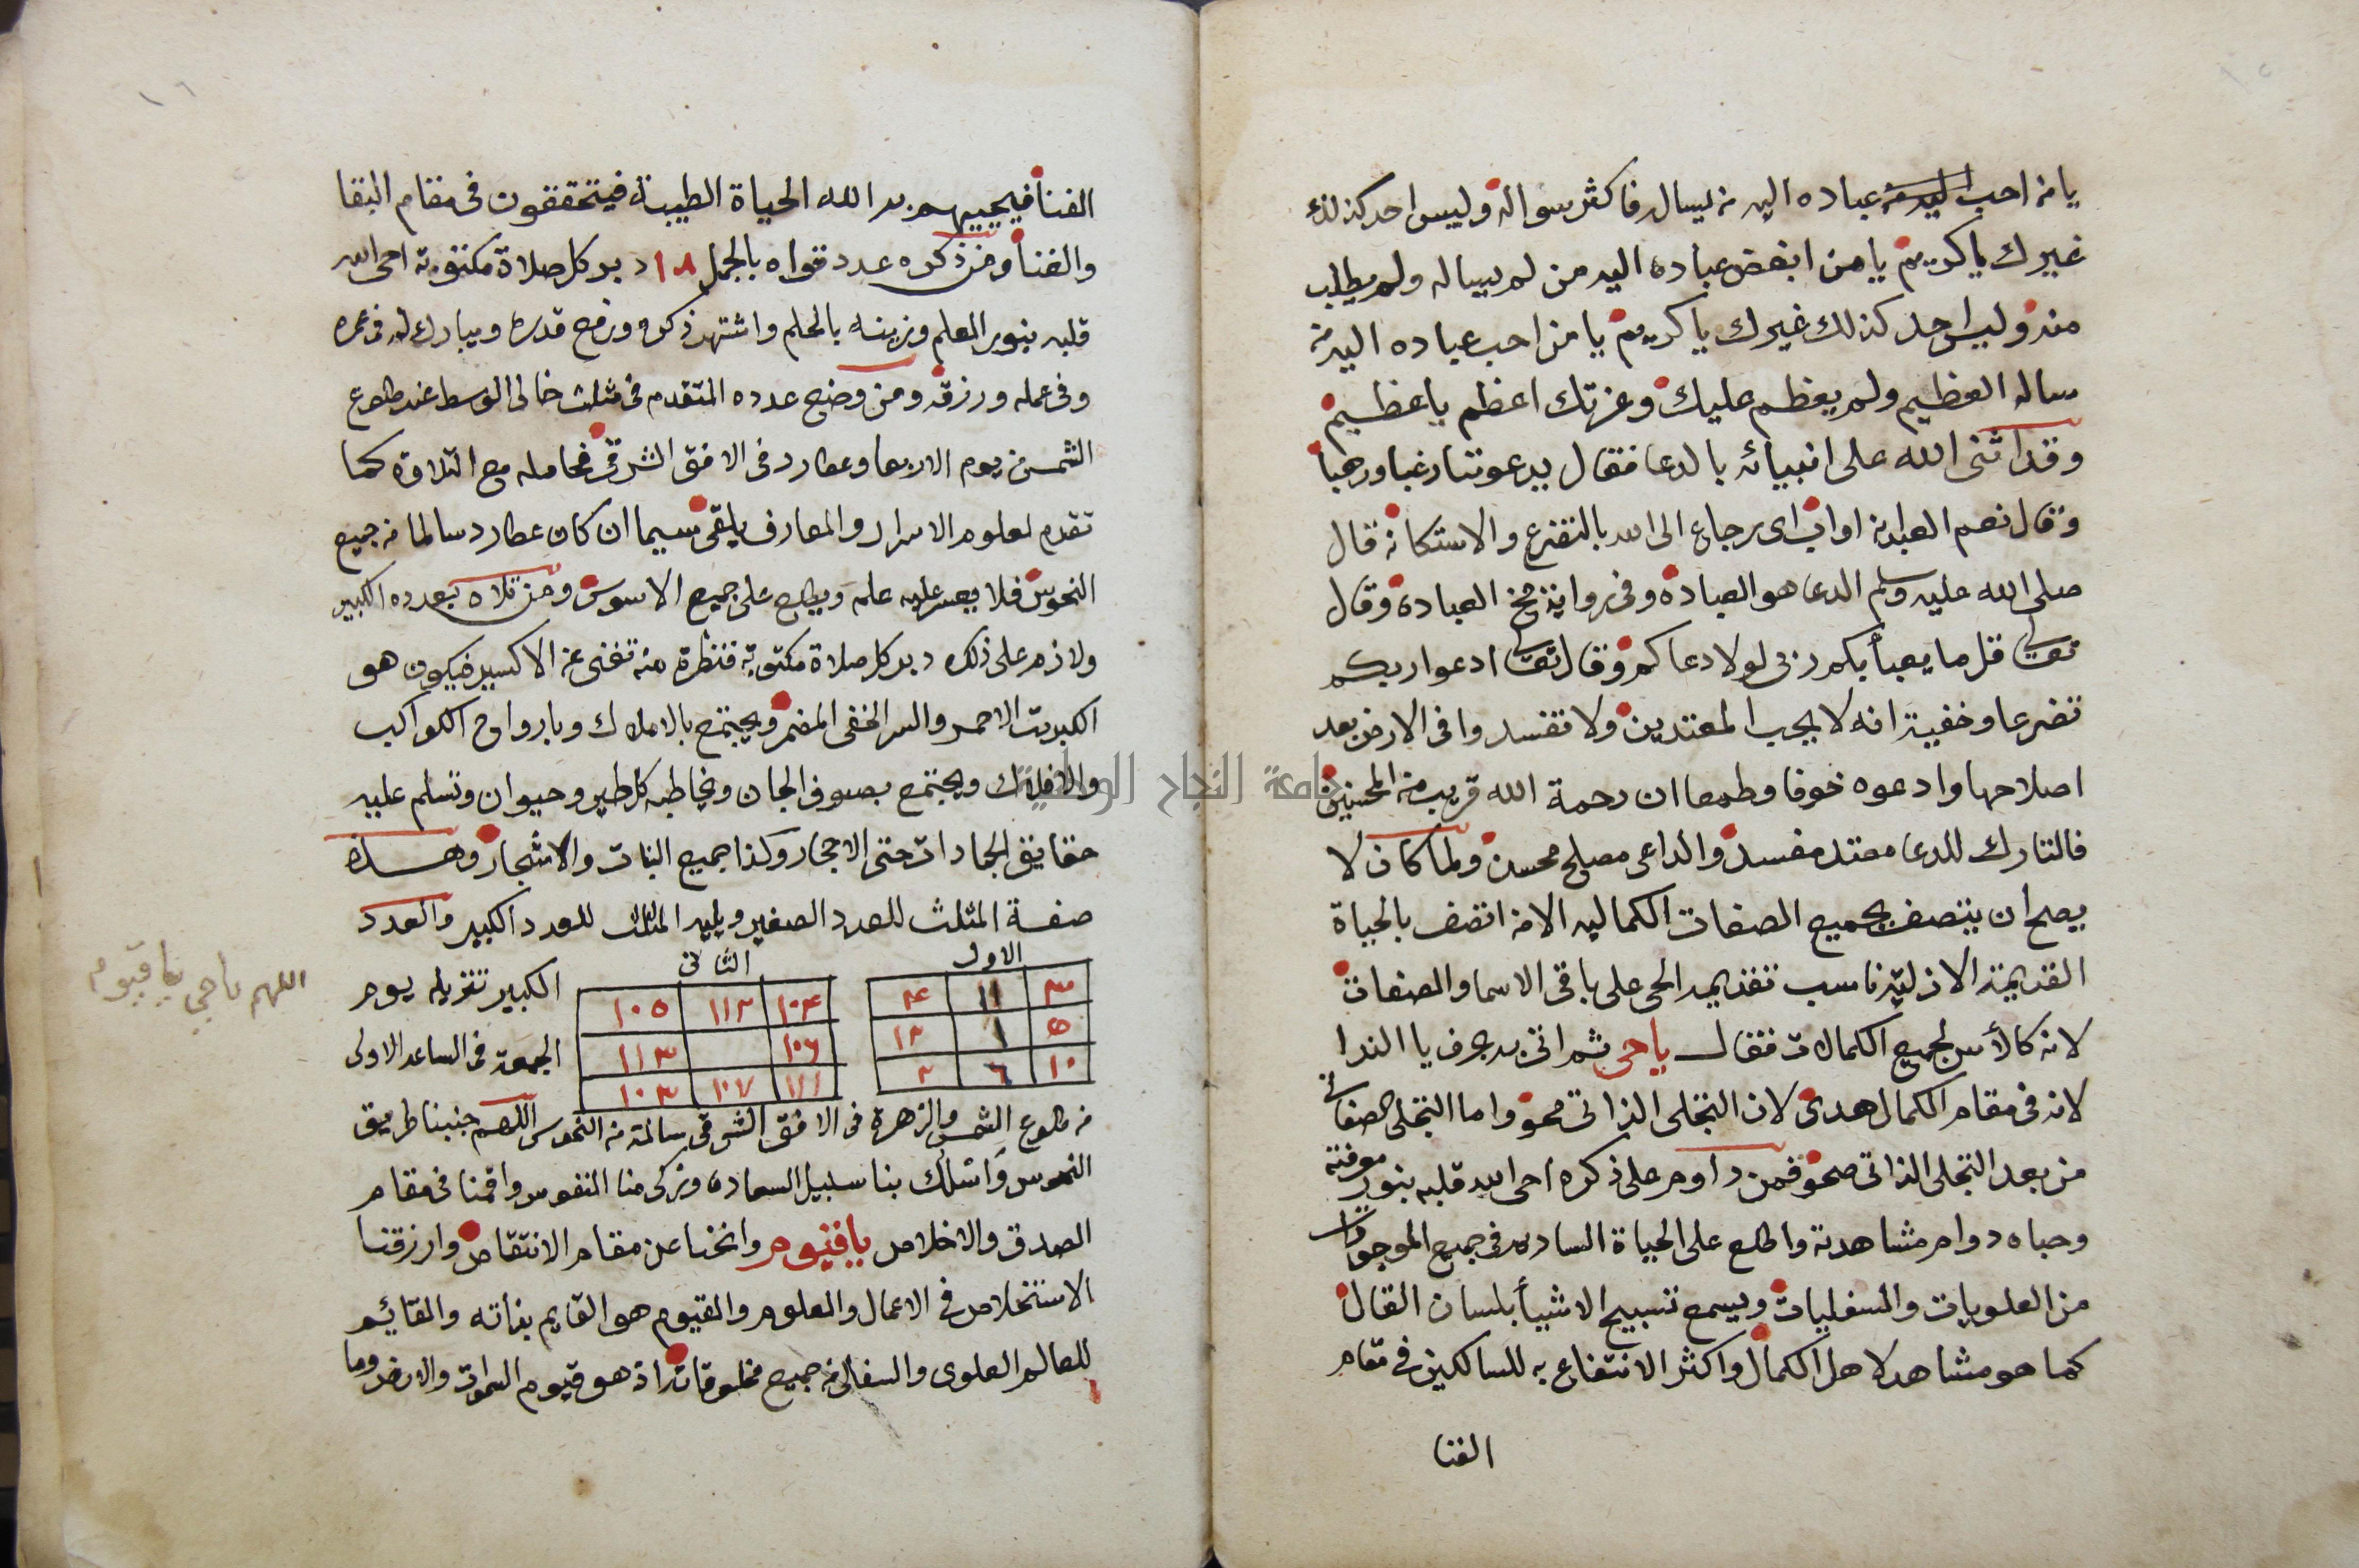 يا من احب عباده اليه من يسال فاكثر سواله وليس احد كذلك
غيرك يا كريم يا من ابغض عباده اليه من لم يساله ولم يطلب
منه وليس احد كذلك غيرك يا كريم يا من احب عباده اليه من
ساله العظيم ولم يعظم عليك وعزتك اعظم يا عظيم
وقد اثنى الله على انبيائه بالدعا فقال يدعوننا رغبا ورهبا
وقال نعم العبد انه اواب اى رجاع الى الله بالتضرع والاستكانة قال
صلى الله عليه وسلم الدعا هو العبادة وفى رواية مخ العبادة وقال
تعالى قل ما يعبأ بكم ربى لولا دعاكم وقال تعالى ادعوا ربكم
تضرعا وخفية انه لا يحب المعتدين ولا تفسدوا فى الارض بعد
اصلاحها وادعوه خوفا وطمعا ان رحمة الله قريب من المحسنين
فالتارك للدعا معتد مفسد والداعى مصلح محسن ولما كان لا
يصح ان يتصف بجميع الصفات الكماليه الا من اتصف بالحياة
القديمة الازلية ناسب تقديمه الحى على باقى الاسما والصفات
لانه كالأس لجميع الكمالات فقال يا حى ثم اتى بحرف يا الندا
لانه فى مقام الكمال هدى لان التجلى الذاتى محو واما التجلى الصفاتى
من بعد التجلى الذاتى صحو فمن داوم على ذكره احى الله قلبه بنور معرفته
وحباه دوام مشاهدته واطلع على الحياة السارية فى جميع الموجودات
من العلويات والسفليات ويسمع تسبيح الاشيأ بلسان القال
كما هو مشاهد لاهل الكمال واكثر الانتفاع به للسالكين فى مقام
الفنا
الفنا فيحييهم الله الحياة الطيبة فيتحققون فى مقام البقا
والفنا ومن ذكره عدد قواه بالجمل ١٨ دبر كل صلاة مكتوبة احى الله
قلبه بنور العلم وزينه بالحلم واشتهر ذكره ورفع قدره ويبارك له فى عمره
وفى عمله ورزقه ومن وضع عدده المتقدم فى مثلث خالى الوسط عند طلوع
الشمس يوم الاربعا وعطارد فى الافق الشرقى فحامله مع التلاوة كما
تقدم لعلوم الاسرار والمعارف يلقى سيما ان كان عطارد سالما من جميع
النحوس فلا يعسر عليه علم ويطلع على جميع الاسوس ومن تلاه بعدده الكبير
ولازم على ذلك دبر كل صلاة مكتوبة فنظرة منه تغنى عن الاكسير فيكون هو
الكبريت الاحمر والسر الخفى المضمر ويجتمع بالاملاك وبارواح الكواكب
والافلاك ويجتمع بصنوف الجان ويخاطبه كل طير وحيوان وتسلم عليه
حقايق الجمادات حتى الاحجار وكذا جميع النبات والاشجار وهذه
صفة المثلث للعدد الصغير ويليه المثلث للعدد الكبير والعدد
الاول
٣ ١١ ٤
٥ ١ ١٢
١٠ ٦ ٢
الثانى
١٠٤ ١١٢ ١٠٥
١٠٦ ١١٣
١١١ ١٠٧ ١٠٣
الكبير تنزيله يوم
الجمعة فى الساعة الاولى
من طلوع الشمس والزهرة فى الافق الشرقى سالمة من النحوس اللهم جنبنا طريق
النحوس واسلك بنا سبيل السعادة وزكى منا النفوس واقمنا فى مقام
الصدق والاخلاص يا قيوم وانخنا عن مقام الانتقاص وارزقنا
الاستخلاص فى الاعمال والعلوم والقيوم هو القايم بذاته والقائم
للعالم العلوى والسفلى من جميع مخلوقاته اذ هو قيوم السموات والارض وما
اللهم يا حي يا قيوم
جامعة النجاح الوطنية